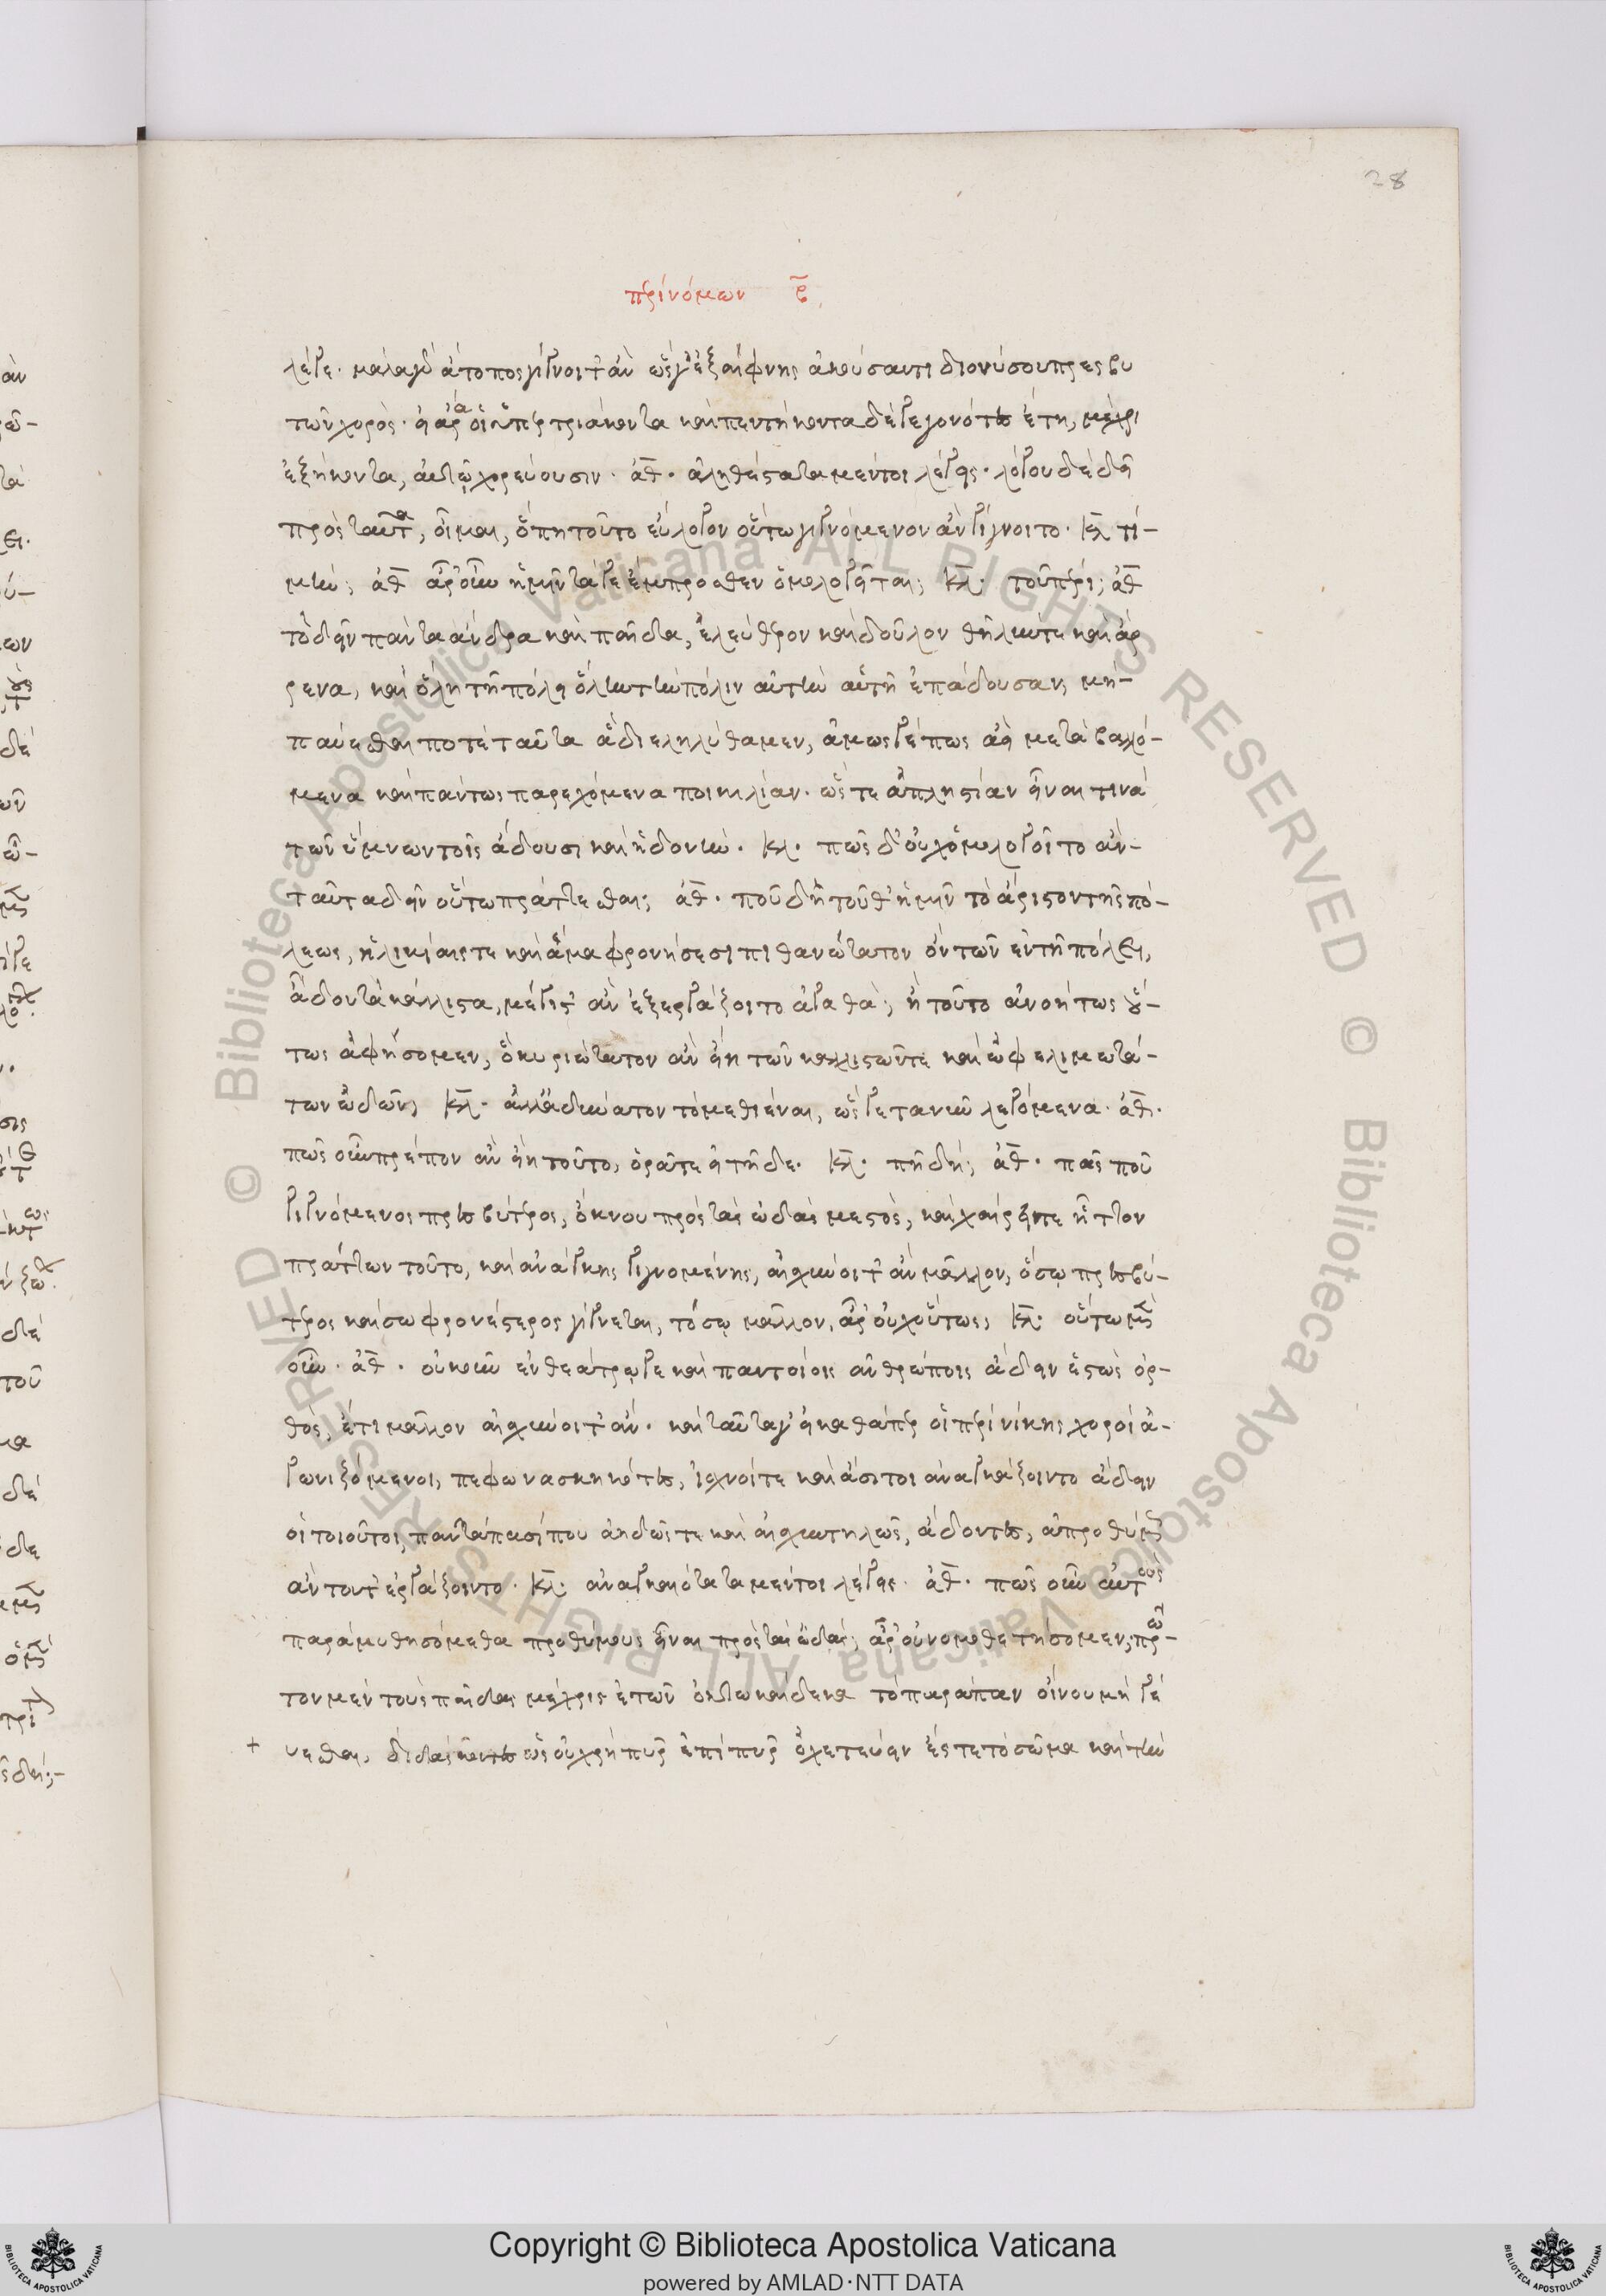 28
περὶ νόμων β̄
λέγε. μάλα γὰρ ἄτοπος γίγνοιτ' ἂν ὥς γ' ἐξαίφνης ἀκούσαντι διονύσου πρεσβυ
τῶν χορὸς. εἰ ἄρα οἱ ὑπὲρ τριάκοντα καὶ πεντήκοντα δὲ γεγονότες ἔτη, μέχρι
ἑξήκοντα, αὐτῷ χορεύουσιν. ἀθ. ἀληθέστατα μέντοι λέγεις. λόγου δὲ δεῖ
πρὸς ταῦτα, οἶμαι, ὅπη τοῦτο εὔλογον οὕτω γιγνόμενον ἂν γίγνοιτο. κλ τί–
μήν; ἀθ ἆρ' οὖν ἡμῖν τά γε ἔμπροσθεν ὁμολογεῖται; κλ. τοῦ πέρι; ἀθ
τὸ δεῖν πάντα ἄνδρα καὶ παῖδα, ἐλεύθερον καὶ δοῦλον θῆλύν τε καὶ ἄρ
ρενα, καὶ ὅλη τῇ πόλει ὅλην τὴν πόλιν αὐτὴν αὑτῇ ἐπάδουσαν, μή–
παύεσθαί ποτε ταῦτα ἃ διεληλύθαμεν, ἄμως γέ πως ἀεὶ μεταβαλλό–
μενα καὶ πάντως παρεχόμενα ποικιλίαν. ὥστε ἀπληστίαν εἶναί τινα
τῶν ὕμνων τοῖς ἄδουσι καὶ ἡδονήν. κλ. πῶς δ' οὐχ ὁμολογοῖτο ἂν–
ταῦτα δεῖν οὕτω πράττεσθαι; ἀθ. ποῦ δὴ τοῦθ' ἡμῖν τὸ ἄριστον τῆς πό–
λεως, ἡλικίαις τε καὶ ἅμα φρονήσεσι πιθανώτατον ὂν τῶν ἐν τῇ πόλει,
ἆδον τὰ κάλλιστα, μέγιστ' ἂν ἐξεργάζοιτο ἀγαθά; ἢ τοῦτο ἀνοήτως οὕ–
τως ἀφήσομεν, ὃ κυριώτατον ἂν εἴη τῶν καλλίστων τε καὶ ὠφελιμωτά–
των ᾠδῶν; κλ. ἀλλὰ ἀδύνατον τὸ μεθιέναι, ὥς γε τανῦν λεγόμενα. ἀθ.
πῶς οὖν πρέπον ἂν εἴη τοῦτο, ὁρᾶτε εἰ τῇδε. κλ. πῇ δή; ἀθ. πᾶς που
γιγνόμενος πρεσβύτερος, ὄκνου πρὸς τὰς ᾠδὰς μεστὸς, καὶ χαίρει τε ἧττον
πράττων τοῦτο, καὶ ἀνάγκης γιγνομένης, αἰσχύνοιτ' ἂν μᾶλλον, ὅσῳ πρεσβύ–
τερος καὶ σωφρονέστερος γίγνεται, τόσῳ μᾶλλον, ἆρ' οὐχ οὕτως; κλ. οὕτω μὲν
οὖν. ἀθ. οὐκοῦν ἐν θεάτρῳ γε καὶ παντοίοις ἀνθρώποις ἄδειν ἑστὼς ὀρ–
θὸς, ἔτι μᾶλλον αἰσχύνοιτ' ἄν. καὶ ταῦτά γ' εἰ καθάπερ οἱ περὶ νίκης χοροὶ ἀ–
γωνιζόμενοι, πεφωνασκηκότες, ἰσχνοί τε καὶ ἄσιτοι ἀναγκάζοιντο ἄδειν
οἱ τοιοῦτοι, παντάπασί που ἀηδῶς τε καὶ αἰσχυντηλῶς, ἄδοντες, ἀπροθύμως
ἂν τοῦτ' ἐργάζοιντο. κλ. ἀναγκαιότατα μέντοι λέγεις. ἀθ. πῶς οὖν αὐτοὺς
παραμυθησόμεθα προθύμους εἶναι πρὸς τὰς ᾠδάς; ἆρ' οὐ νομοθετήσομεν; πρῶ–
τον μὲν τοὺς παῖδας μέχρις ἐτῶν ὀκτωκαίδεκα τὸ παράπαν οἴνου μὴ γεύ
+ υεσθαι, διδάσκοντες ὡς οὐ χρὴ πῦρ ἐπὶ πῦρ ὀχετεύειν εἴς τε τὸ σῶμα καὶ τὴν